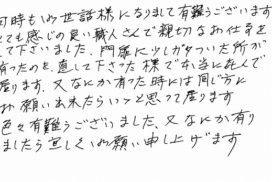 何時もお世話様になりまして有難うございます
とても感じの良い職人さんで親切なお仕事を
して下さいました、門扉に少しガタつい た所が
有ったのを、直して下さった様で本当に喜んで
居ります、又なにか有った時には同じ方に
お願い出来たらいゝと思って居ります
色々有難うございました、又なにか有り
ましたら宜しくお願い申し上げます